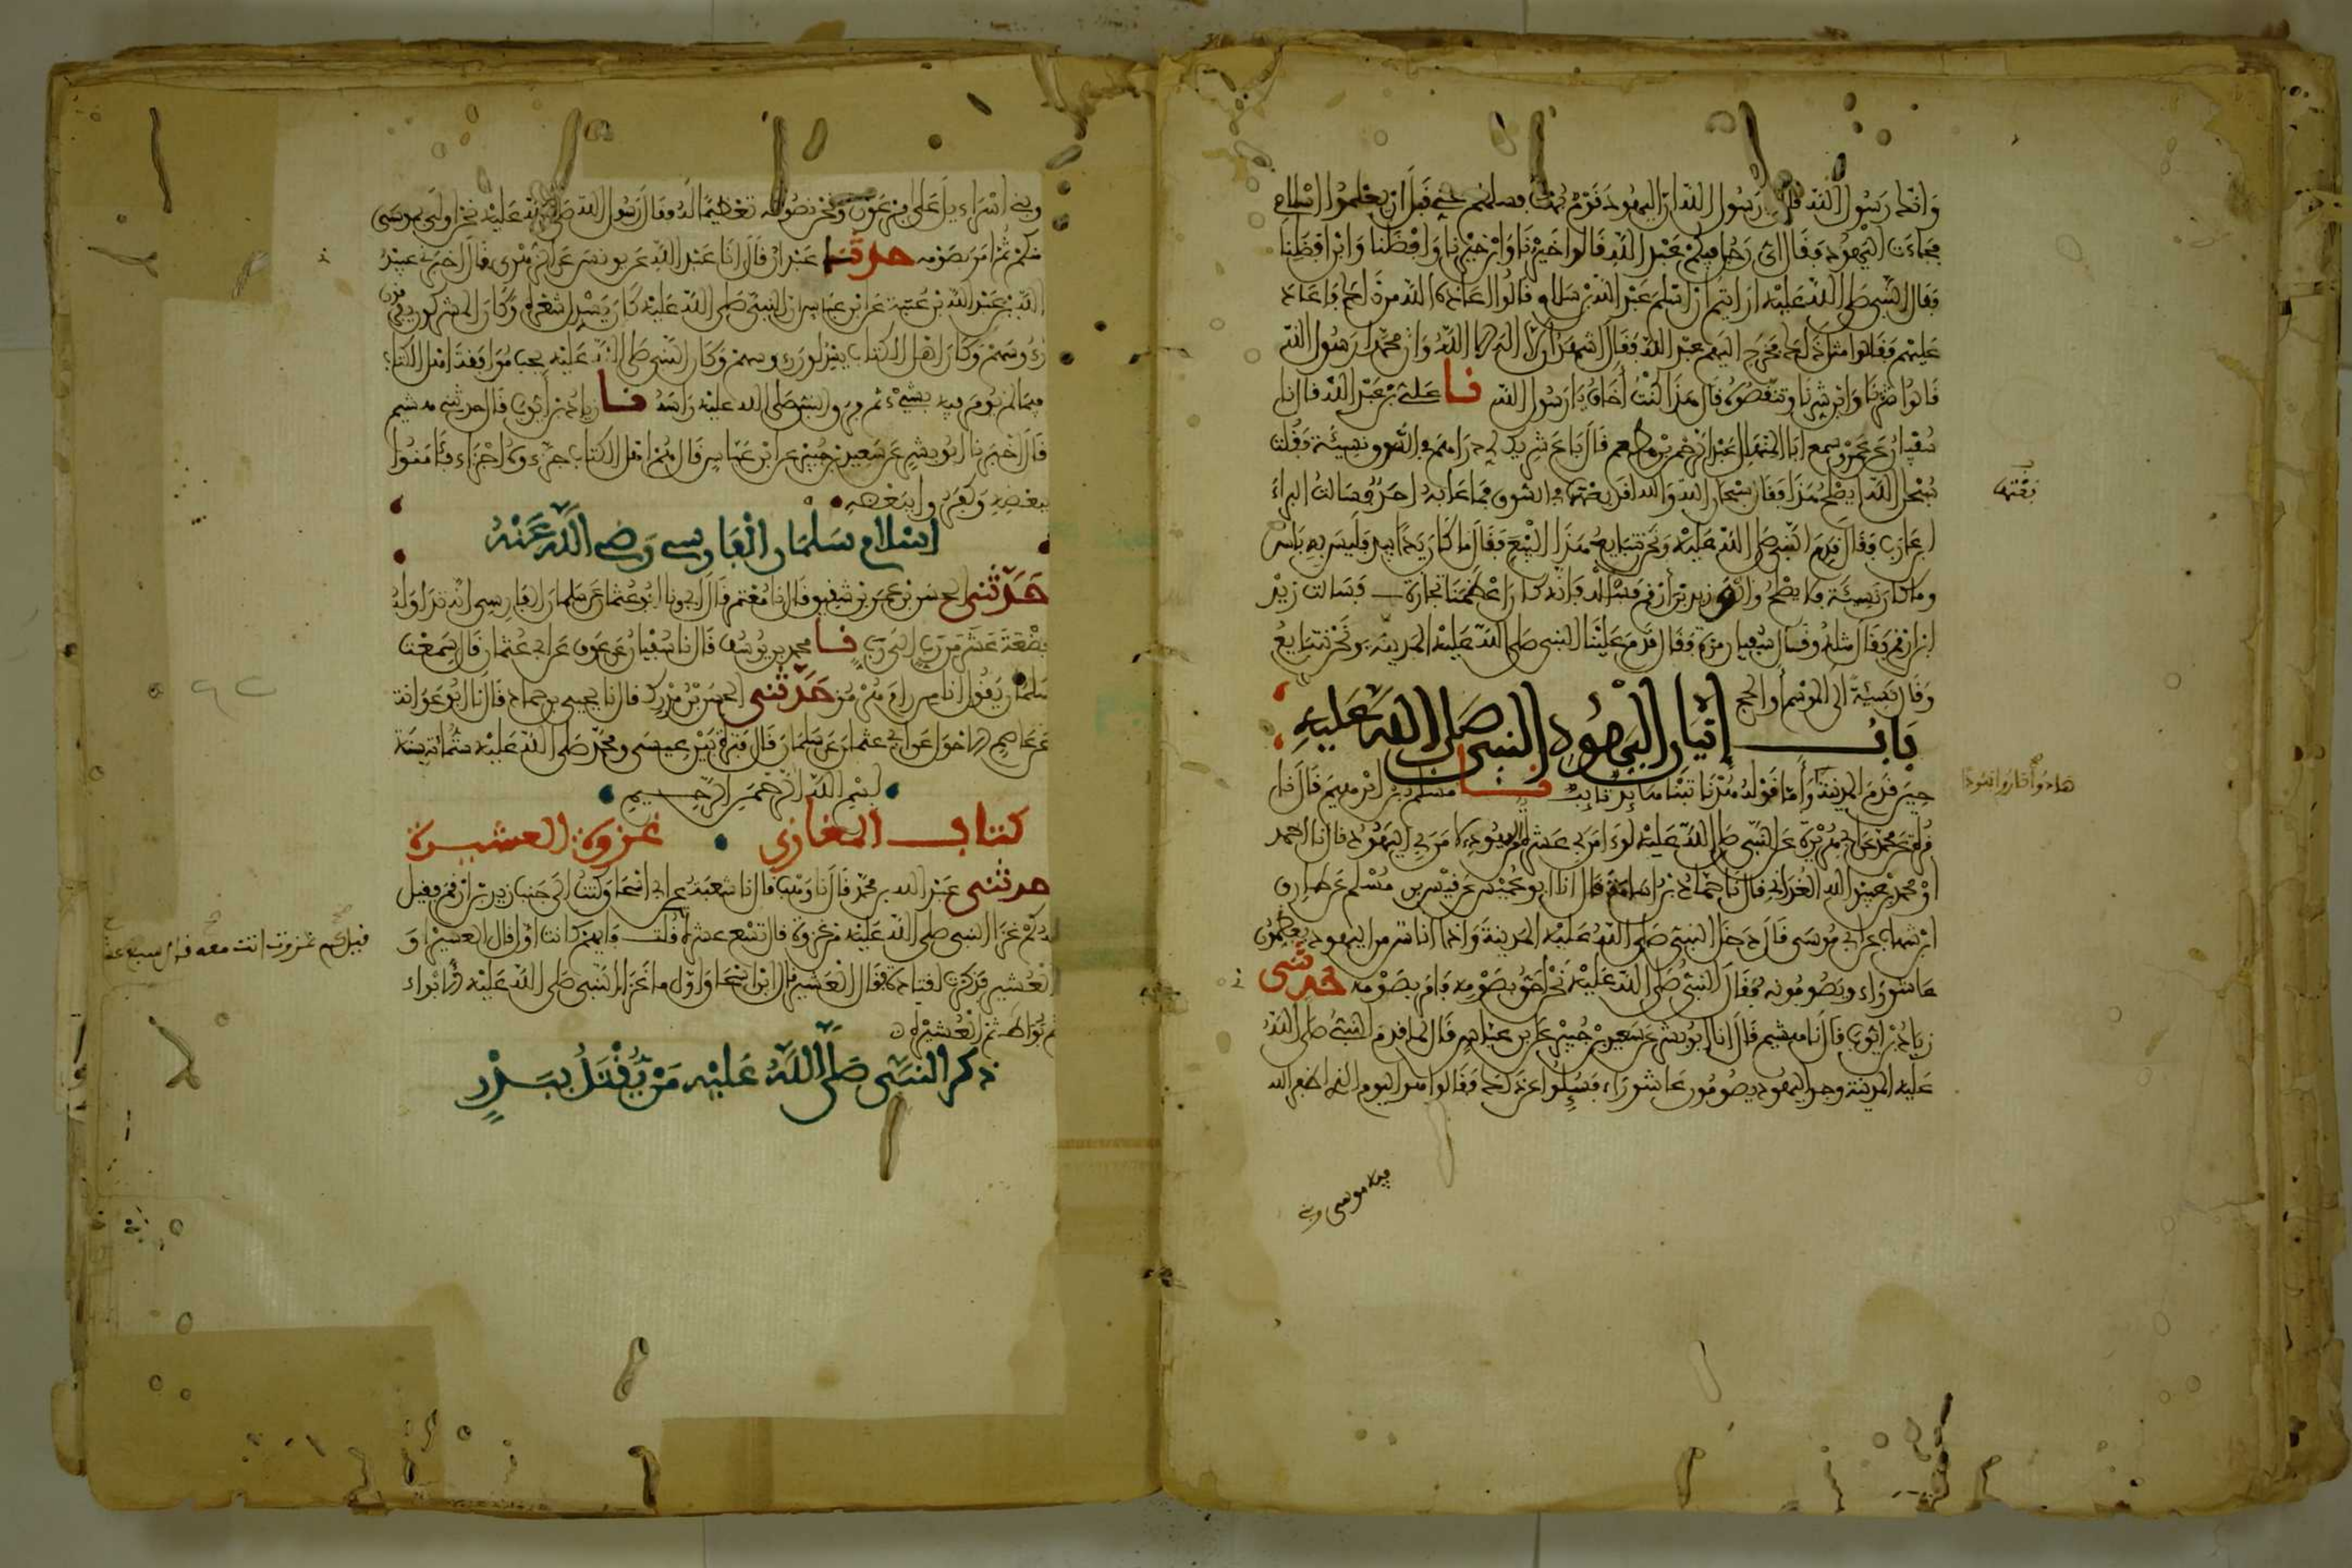 وانك رسول الله قال يرسول الله ان اليهود قوم بهت فسلهم عني قبل ان يعلموا اسلامي
فجاءت اليهود فقال اي رجل فيكم عبد الله قالوا خيرنا وابن خيرنا وافضلنا وابن افضلنا
فقال النبي صلى الله عليه ارايتم ان اسلم عبد الله بن سلام قالوا اعاذه الله من ذلك فاعاد
عليهم فقالوا مثل ذلك فخرج اليهم عبد الله فقال اشهد ان لا اله الا الله وان محمدا رسول الله
قالوا شرنا وابن شرنا وتنقصوه قال هذا كنت اخاف يا رسول الله نا علي بن عبد الله قال نا
سفيان عن عمرو سمع ابا المنهال عبد الرحمن بن مطعم قال باع شريك لي دراهم في السوق نسيئة فقلت
سبحن الله ايصلح هذا فقال سبحان الله والله لقد بعتها في السوق فما عابه احد فسالت البراء
بن عازب فقال قدم النبي صلى الله عليه ونحن نتبايع هذا البيع فقال ما كان يدا بيد فليس به باس
وما كان نسيئة فلا يصلح والق زيد بن ارقم فسئله فانه كان اعظمنا تجارة فسالت زيد
ابن ارقم فقال مثله وقال سفيان مرة فقال قدم علينا النبي صلى الله عليه المدينة ونحن نتبايع
وقال نسيئة الى الموسم او الحج
باب إتيان اليهود النبي صلى الله عليه
حين قدم المدينة وأما قوله هدنا تبنا هائد تائب نا مسلم بن ابرهيم قال نا
قرة عن محمد عن ابي هريرة عن النبي صلى الله عليه لو ءامن بي عشرة من اليهود لامن بي اليهود قال نا احمد
او محمد بن عبيد الله الغداني قال نا حماد بن اسامة قال انا ابو عميس عن قيس بن مسلم عن طارق
ابن شهاب عن ابي موسى قال دخل النبي صلى الله عليه المدينة واذا اناس من اليهود يعظمون
عاشوراء ويصومونه فقال النبي صلى الله عليه نحن احق بصومه فامر بصومه حدثني
زياد بن ايوب قال نا هشيم قال انا ابو بشر عن سعيد بن جبير عن ابن عباس قال لما قدم النبي صلى الله
عليه المدينة وجد اليهود يصومون عاشوراء فسئلوا عن ذلك فقالوا هذا اليوم الذي اظهر الله
فيه موسى وبني
وبني اسراءيل على فرعون ونحن نصومه تعظيما له فقال رسول الله صلى الله عليه نحن اولى بموسى
منكم ثم امر بصومه حدثنا عبدان قال انا عبد الله عن يونس عن الزهري قال اخبرني عبيد
الله بن عبد الله بن عتبة عن ابن عباس ان النبي صلى الله عليه كان يسدل شعره وكان المشركون يفرقون
رءوسهم وكان اهل الكتاب يسدلون رءوسهم وكان النبي صلى الله عليه يحب موافقة اهل الكتاب
فيما لم يومر فيه بشيء ثم فرق النبي صلى الله عليه راسه نا زياد بن أيوب قال حدثني هشيم
قال اخبرنا ابو بشر عن سعيد بن جبير عن ابن عباس قال هم اهل الكتاب جزءوه اجزاء فئامنوا
ببعضه وكفروا ببعضه
اسلام سلمان الفارسي رضي الله عنه
حدثني الحسن بن عمر بن شقيق قال نا معتمر قال ابي ونا ابو عثمان عن سلمان الفارسي انه تداوله
بضعة عشر من رب الى رب نا محمد بن يوسف قال نا سفيان عن عوف عن ابي عثمان قال سمعت
سلمان يقول انا من رام هرمز حدثني الحسن بن مدرك قال نا يحيى بن حماد قال نا ابو عوانة
عن عاصم الاحول عن ابي عثمان عن سلمان قال فترة بين عيسى ومحمد صلى الله عليه ستمائة سنة
بسم الله الرحمن الرحيم
كتاب المغازي غزوة العشيرة
حدثني عبد الله بن محمد قال نا وهب قال نا شعبة عن ابي اسحاق كنت الى جنب زيد بن ارقم فقيل
له كم غزا النبي صلى الله عليه من غزوة قال تسع عشرة قلت فايهم كانت اول قال العسير او
العشير فذكرت لقتادة فقال العشير قال ابن اسحاق اول ما غزا النبي صلى الله عليه الابواء
ثم بواط ثم العشيرة
قيل كم غزوت انت معه قال سبع عشرة
ذكر النبي صلى الله عليه من يقتل ببدر